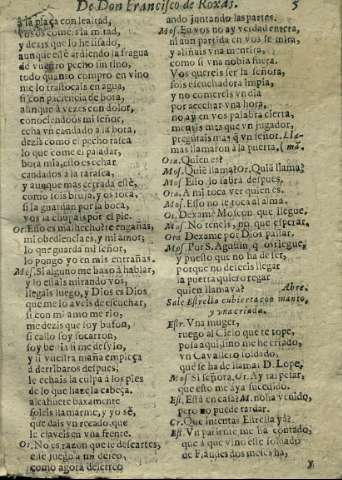 De Don Francisco de Roxas. 5
à la plaça con lealtad,
vos os comeis la mitad,
y dezis que lo he sisado,
aunque estè ardiendo la fragua
de vuestro pecho sin tino,
todo quanto compro en vino
me lo trastocais en agua,
si con paciencia de bota,
aunque à vezes con dolor,
conociendoos mi señor,
echa vn candado a la bota,
dezis como el pecho rasca
lo que come el paladar,
bota mia, esso es echar
candados a la tarasca,
y aunque mas cerrada estè,
como sois bruja, y os toca,
si la guardan por la boca,
vos la chupais por el pie.
Or. Esso es mal hecho te engañas,
mi obediencia es, y mi amor,
lo que guarda mi señor,
lo pongo yo en mis entrañas.
Mos. Si alguno me baxo à hablar,
y lo estais mirando vos,
llegais luego, y Dios es Dios
que me lo aveis de escuchar,
si con mi amo me rio,
me dezis que soy bufon,
si callo soy socarron,
soy bestia si me desvio,
y si vuestra maña empieça
à derribaros despues,
le echais la culpa à los pies
de lo que haze la cabeça.
alcahuete baxamente
soleis llamarme, y yo sè,
que dais vn recado, que
le claveis en vna frente.
Or. No es razon que te descartes,
esse juego a mi dereo,
como agora desereo
ando juntando las partes.
Mos. En vos no ay verdad entera,
ni aun partida en vos se mira,
y aliñais vna mentira
como si vna novia fuera.
Vos quereis ser la señora,
sois escuchadora impia,
y no comereis vn dia
por acechar vna hora,
no ay en vos palabra cierta,
mentis mas que vn jugador,
preguntais mas que vn señor. Lla-
mas llamaron à la puerta, (mã.
Ora. Quien es?
Mos. Quiẽ llama? Or. Quiẽ llama?
Mos. Esso lo sabrà despues,
Ora. A mi toca ver quien es.
Mos. Esso no te toca al ama.
Or. Dexame Moscon que llegue,
Mos. No teneis, no que esperar.
Ora Dexame por Dios passar.
Mos. Por S. Agustin q̃ os riegue;
y puesto que no ha de ser,
porque no deteis llegar
la puerta quiero regar
quien llamava? Abre.
Sale Estrella cubierta con manto,
y vna criada.
Estr. Vna muger,
ruego al Cielo que te tope,
posa aqui, si no me he criado,
vn Cavallero soldado,
que se ha de llamar D. Lope,
Mos. Si señora. Or. Ay tal pesar,
que esto me aya sucedido.
Est. Està en casa? M. no ha venido,
pero no puede tardar.
Cr. Que intentas Estrella ya?
Est. Vn pariente me ha contado,
que à que vino esse soldado
de Flandes dos meses ha,
y